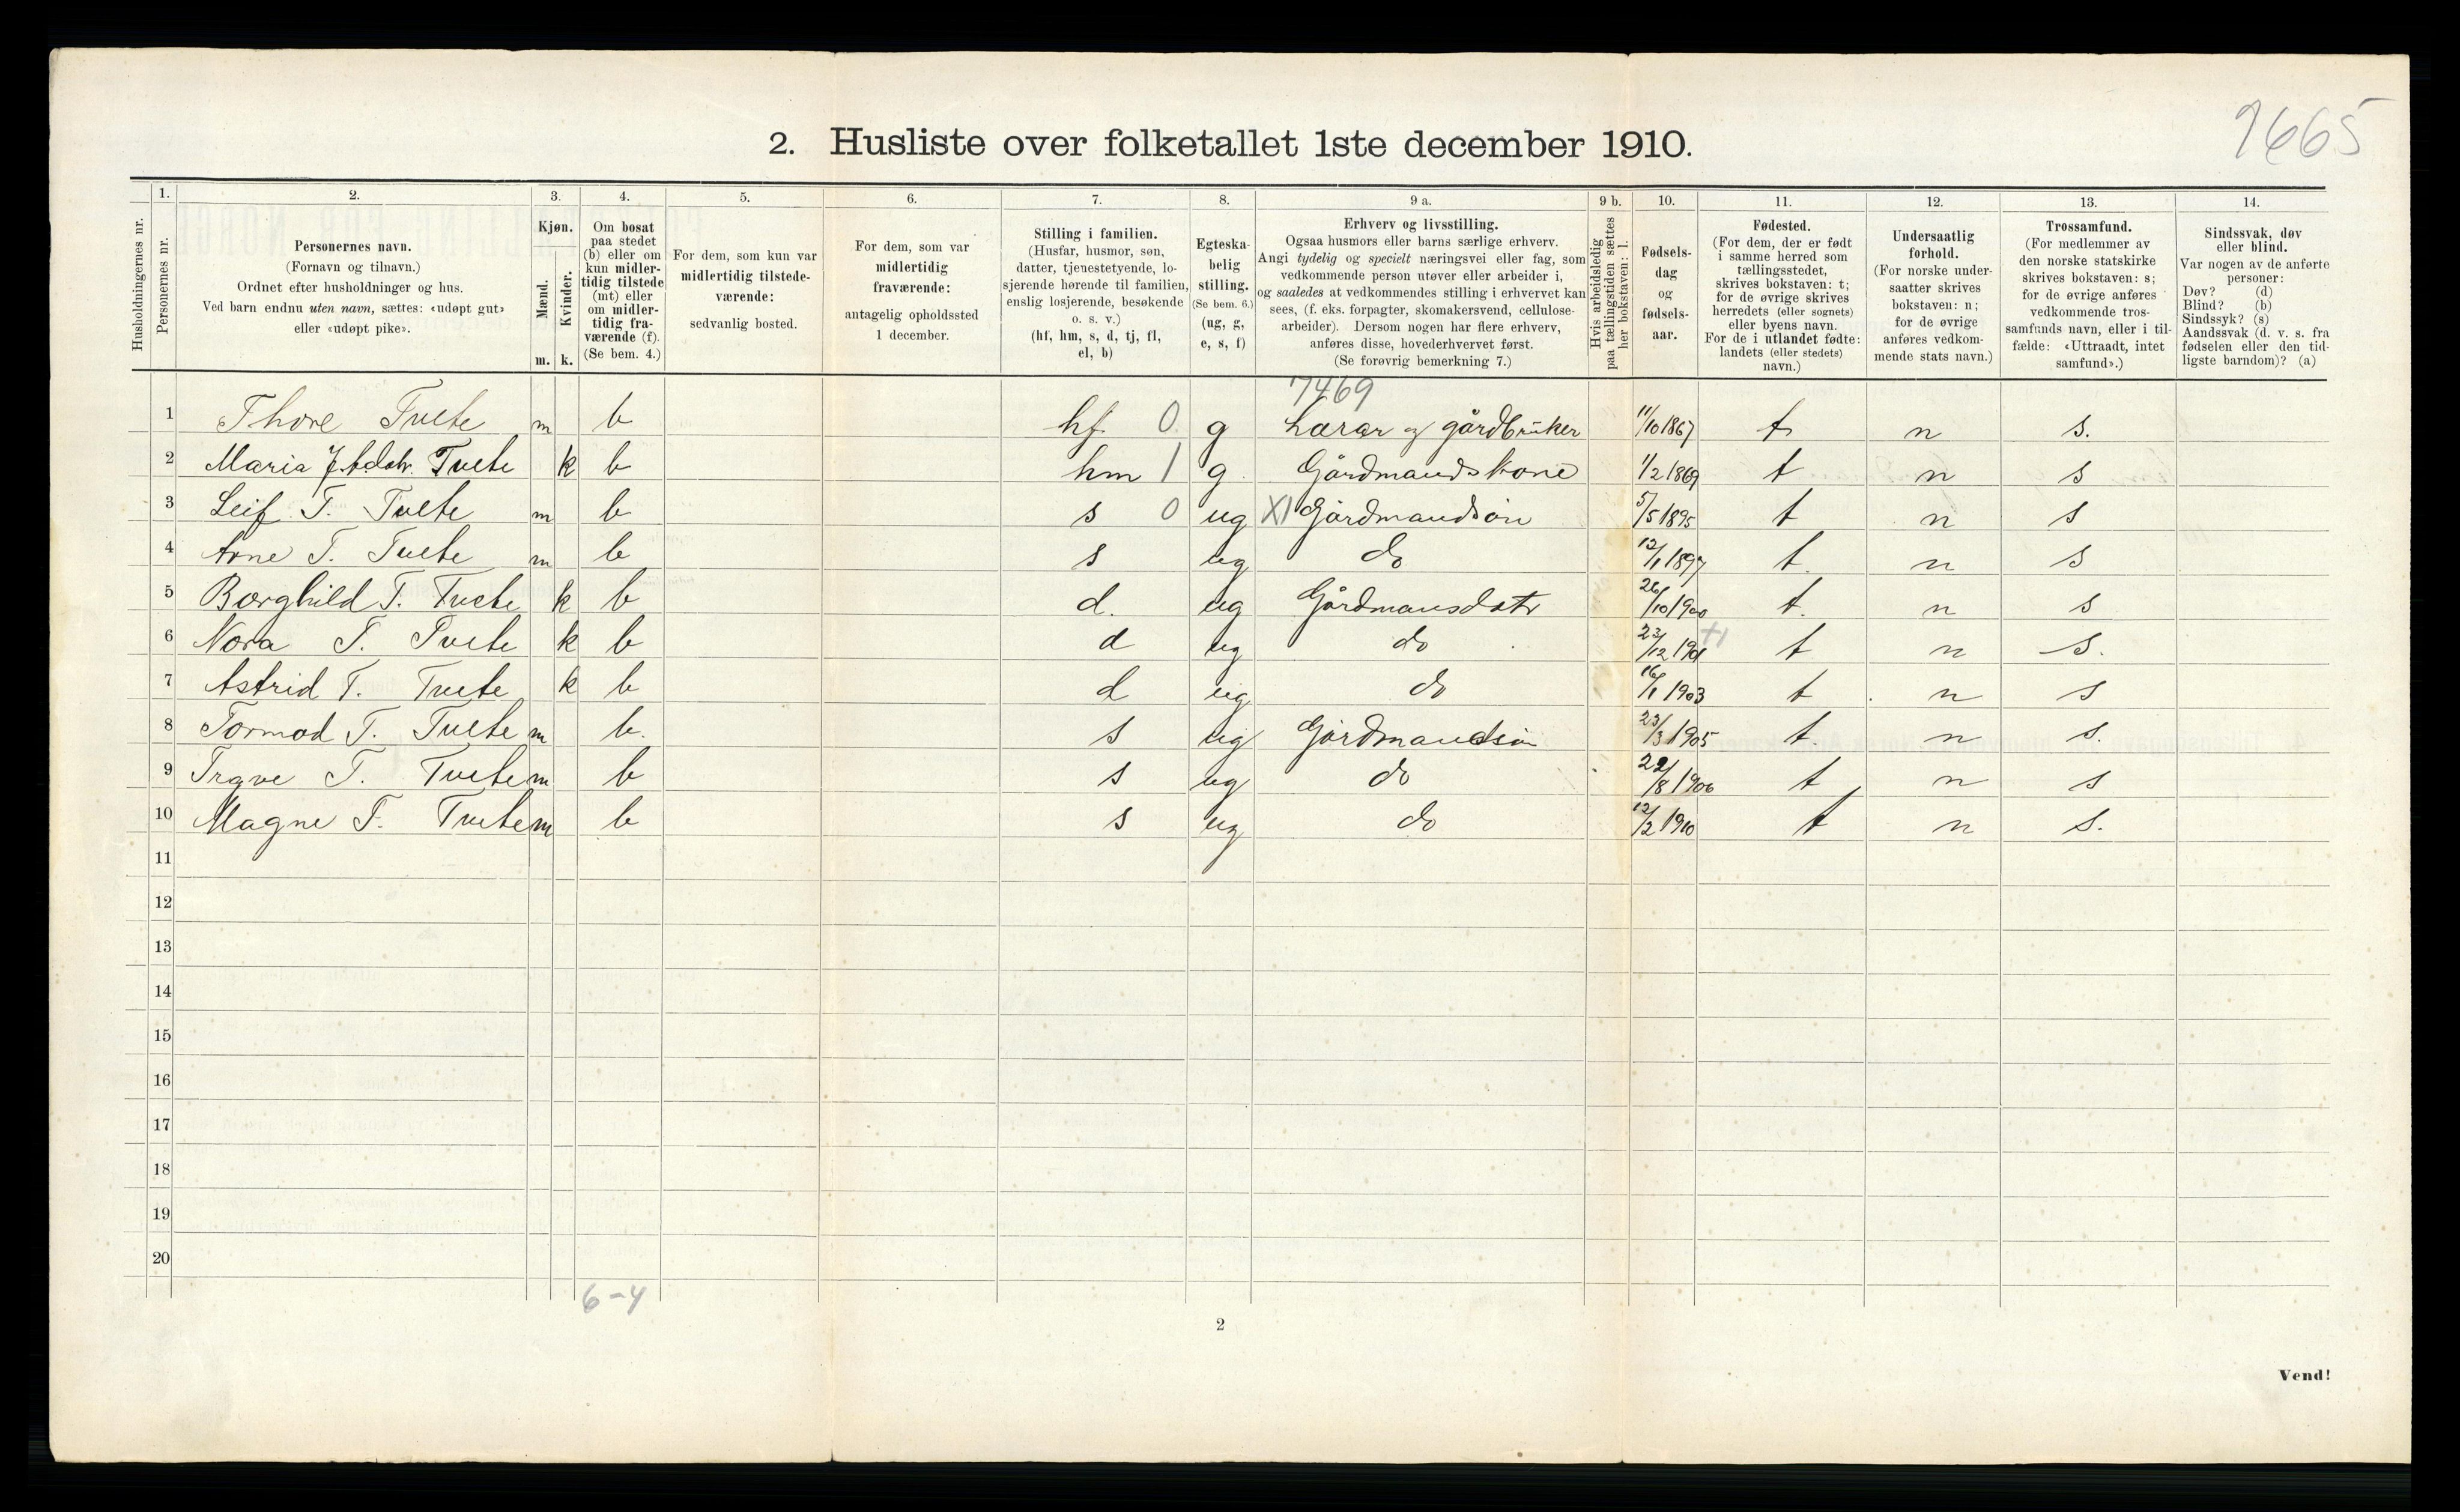 9665
2. Husliste over folketallet 1ste december 1910.
1. 2. 3. 4. 5. 6. 7. 8. 9 a. 9 b. 10. 11. 12. 13. 14.
Husholdningernes nr.
Personernes nr.
Personernes navn.
(Fornavn og tilnavn.)
Ordnet efter husholdninger og hus.
Ved barn endnu uten navn, sættes: «udøpt gut»
eller «udøpt pike».
Kjøn.
Mænd.
Kvinder.
m. k.
Om bosat
paa stedet
(b) eller om
kun midler-
tidig tilstede
(mt) eller
om midler-
tidig fra-
værende (f).
(Se bem. 4.)
For dem, som kun var
midlertidig tilstede-
værende:
sedvanlig bosted.
For dem, som var
midlertidig
fraværende:
antagelig opholdssted
1 december.
Stilling i familien.
(Husfar, husmor, søn,
datter, tjenestetyende, lo-
sjerende hørende til familien,
enslig losjerende, besøkende
o. s. v.)
(hf, hm, s, d, tj, fl,
el, b)
Egteska-
belig
stilling.
(Se bem. 6.)
(ug, g,
e, s, f)
Erhverv og livsstilling.
Ogsaa husmors eller barns særlige erhverv.
Angi tydelig og specielt næringsvei eller fag, som
vedkommende person utøver eller arbeider i,
og saaledes at vedkommendes stilling i erhvervet kan
sees, (f. eks. forpagter, skomakersvend, cellulose-
arbeider). Dersom nogen har flere erhverv,
anføres disse, hovederhvervet først.
(Se forøvrig bemerkning 7.)
Hvis arbeidsledig
paa tællingstiden sættes
her bokstaven: l.
Fødsels-
dag
og
fødsels-
aar.
Fødested.
(For dem, der er født
i samme herred som
tællingsstedet,
skrives bokstaven: t;
for de øvrige skrives
herredets (eller sognets)
eller byens navn.
For de i utlandet fødte:
landets (eller stedets)
navn.)
Undersaatlig
forhold.
(For norske under-
saatter skrives
bokstaven: n;
for de øvrige
anføres vedkom-
mende stats navn.)
Trossamfund.
(For medlemmer av
den norske statskirke
skrives bokstaven: s;
for de øvrige anføres
vedkommende tros-
samfunds navn, eller i til-
fælde: «Uttraadt, intet
samfund».)
Sindssvak, døv
eller blind.
Var nogen av de anførte
personer:
Døv? (d)
Blind? (b)
Sindssyk? (s)
Aandssvak (d. v. s. fra
fødselen eller den tid-
ligste barndom)? (a)
7469
1 Thore Tvete m b hf 0 g Lærar og gårdbruker 11/10 1867 t n s.
2 Maria Tvete k b hm 1 g. Gårdmandskone 1/2 1869 t n s
3 Leif T. Tvete m b s 0 ug X1 Gårdmandsøn 5/5 1895 t n s
4 Arne T. Tvete m b s ug do 12/1 1897 t. n s
5 Borghild T. Tvete k b d. ug Gårdmansdatr 26/10 1900 t. n s
6 Nora T. Tvete k b d ug do 23/12 1901 t n s.
7 Astrid T. Tvete k b d ug do 16/1 1903 t n s
8 Tormod T. Tvete m b. s ug Gårdmandsøn 23/3 1905 t. n s.
9 Trgve T. Tvete m b s ug do 22/8 1906 t n s
10 Magne T. Tvete m b s ug do 12/2 1910 t n s.
11
12
13
14
15
16
17
18
19
20
6-4
2
Vend!